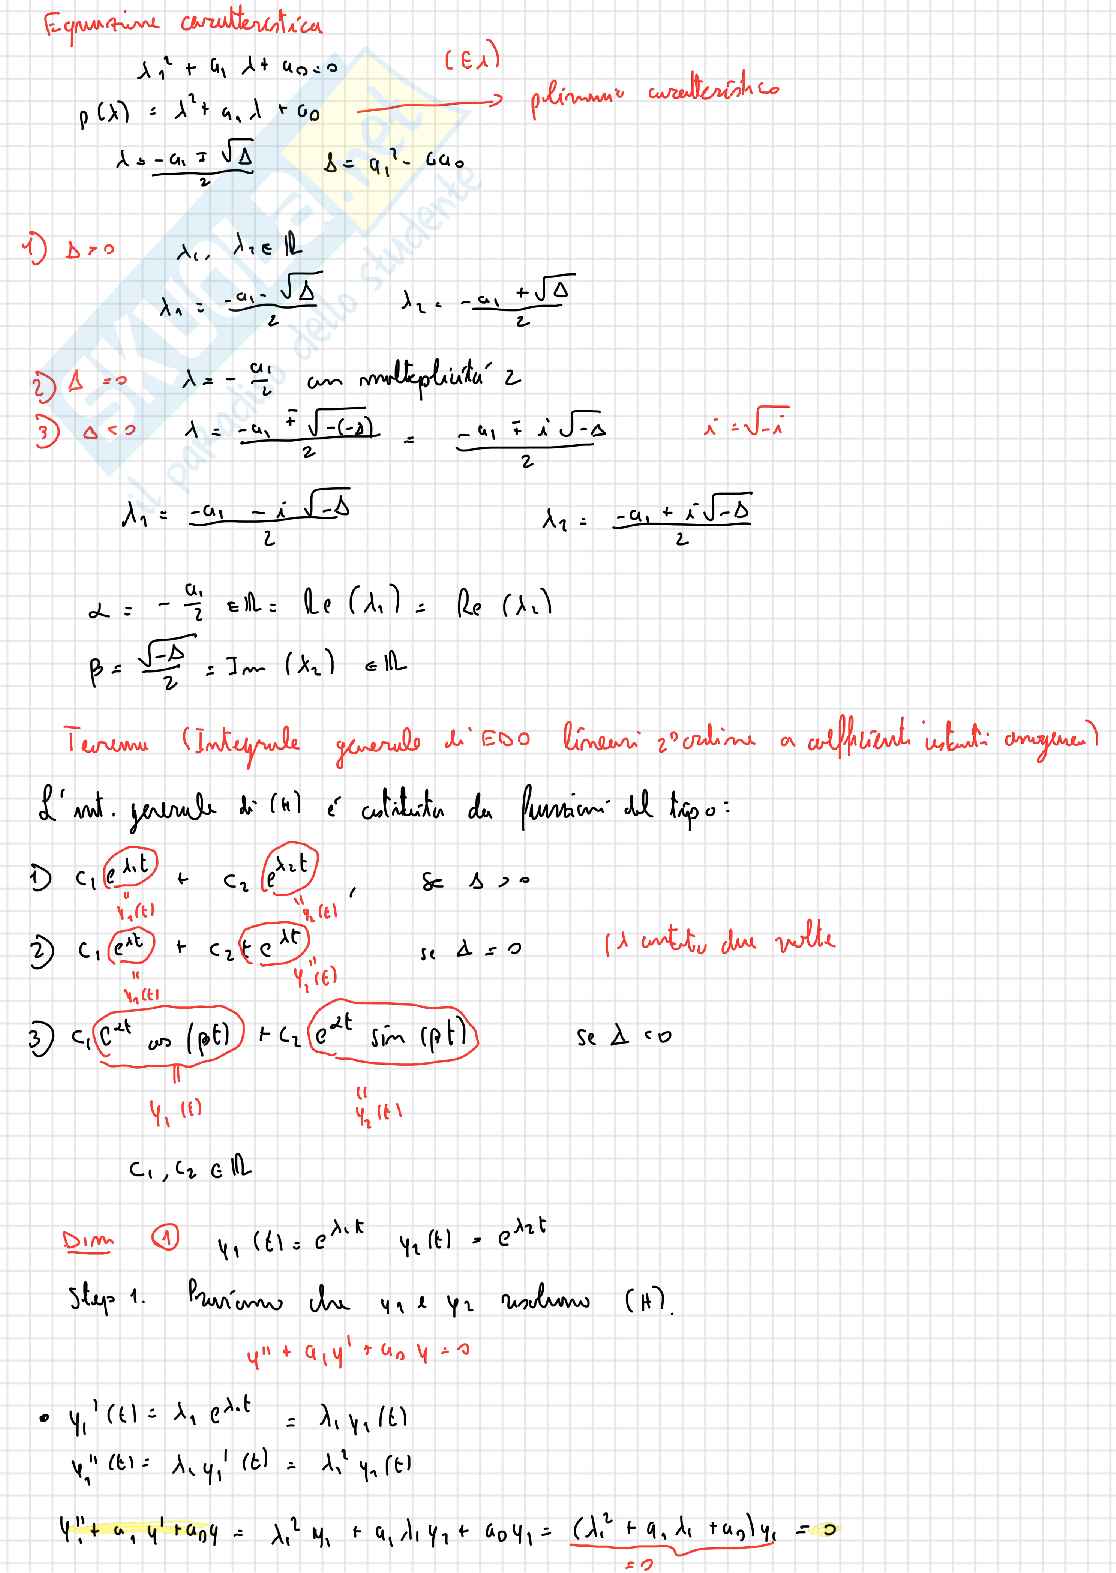 Equazione caratteristica
λ₁² + a₁ λ + a₀ = 0 (Eλ)
p(λ) = λ² + a₁ λ + a₀ → polinomio caratteristico
λ = (-a₁ ∓ √Δ)/2 Δ = a₁² - 4a₀
1) Δ > 0 λ₁, λ₂ ∈ ℝ
λ₁ = (-a₁ - √Δ)/2 λ₂ = (-a₁ + √Δ)/2
2) Δ = 0 λ = - a₁/2 con molteplicitá 2
3) Δ < 0 λ = (-a₁ ∓ √-(-Δ))/2 = (-a₁ ∓ i √-Δ)/2 i = √-i
λ₁ = (-a₁ - i √-Δ)/2 λ₂ = (-a₁ + i √-Δ)/2
α = - a₁/2 ∈ ℝ = Re (λ₁) = Re (λ₂)
β = √-Δ/2 = Im (λ₂) ∈ ℝ
Teorema (Integrale generale di EDO lineari 2° ordine a coefficienti costanti omogenee)
L'int. generale di (H) é costituito da funzioni del tipo:
1) c₁ e^λ₁t + c₂ e^λ₂t, se Δ > 0
= y₁(t) = y₂(t)
2) c₁ e^λt + c₂ t e^λt se Δ = 0 (λ contato due volte
= y₁(t) = y₂(t)
3) c₁ e^αt cos (βt) + c₂ e^αt sin (βt) se Δ < 0
= y₁(t) = y₂(t)
c₁, c₂ ∈ ℝ
Dim ① y₁(t) = e^λ₁t y₂(t) = e^λ₂t
Step 1. Proviamo che y₁ e y₂ risolvono (H).
y'' + a₁y' + a₀ y = 0
• y₁'(t) = λ₁ e^λ₁t = λ₁ y₁(t)
y₁''(t) = λ₁ y₁'(t) = λ₁² y₁(t)
y₁'' + a₁ y' + a₀y = λ₁² y₁ + a₁ λ₁ y₁ + a₀y₁ = (λ₁² + a₁ λ₁ + a₀)y₁ = 0
= 0
SKUOLA.net
al passo dello studente